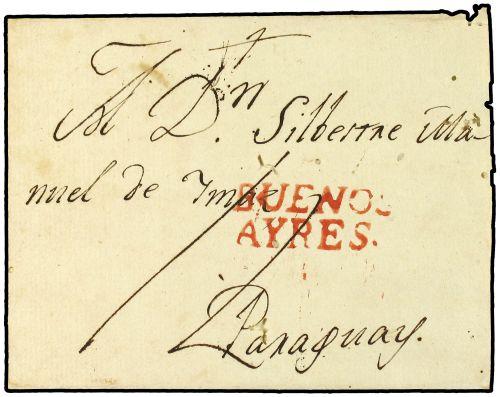 A Dn. Silbertre Ma-
nuel de
BUENOS
AYRES.
Paraguay.